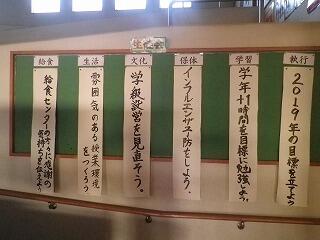 生徒会
執行
2019年の目標を立てよう
学習
学年+1時間を目標に勉強しよう。
保体
インフルエンザ予防をしよう。
文化
学級訳営を見直そう。
生活
雰囲気のある授業環境をつくろう
給食
給食センターの方々に感謝の気持ちを伝えよう